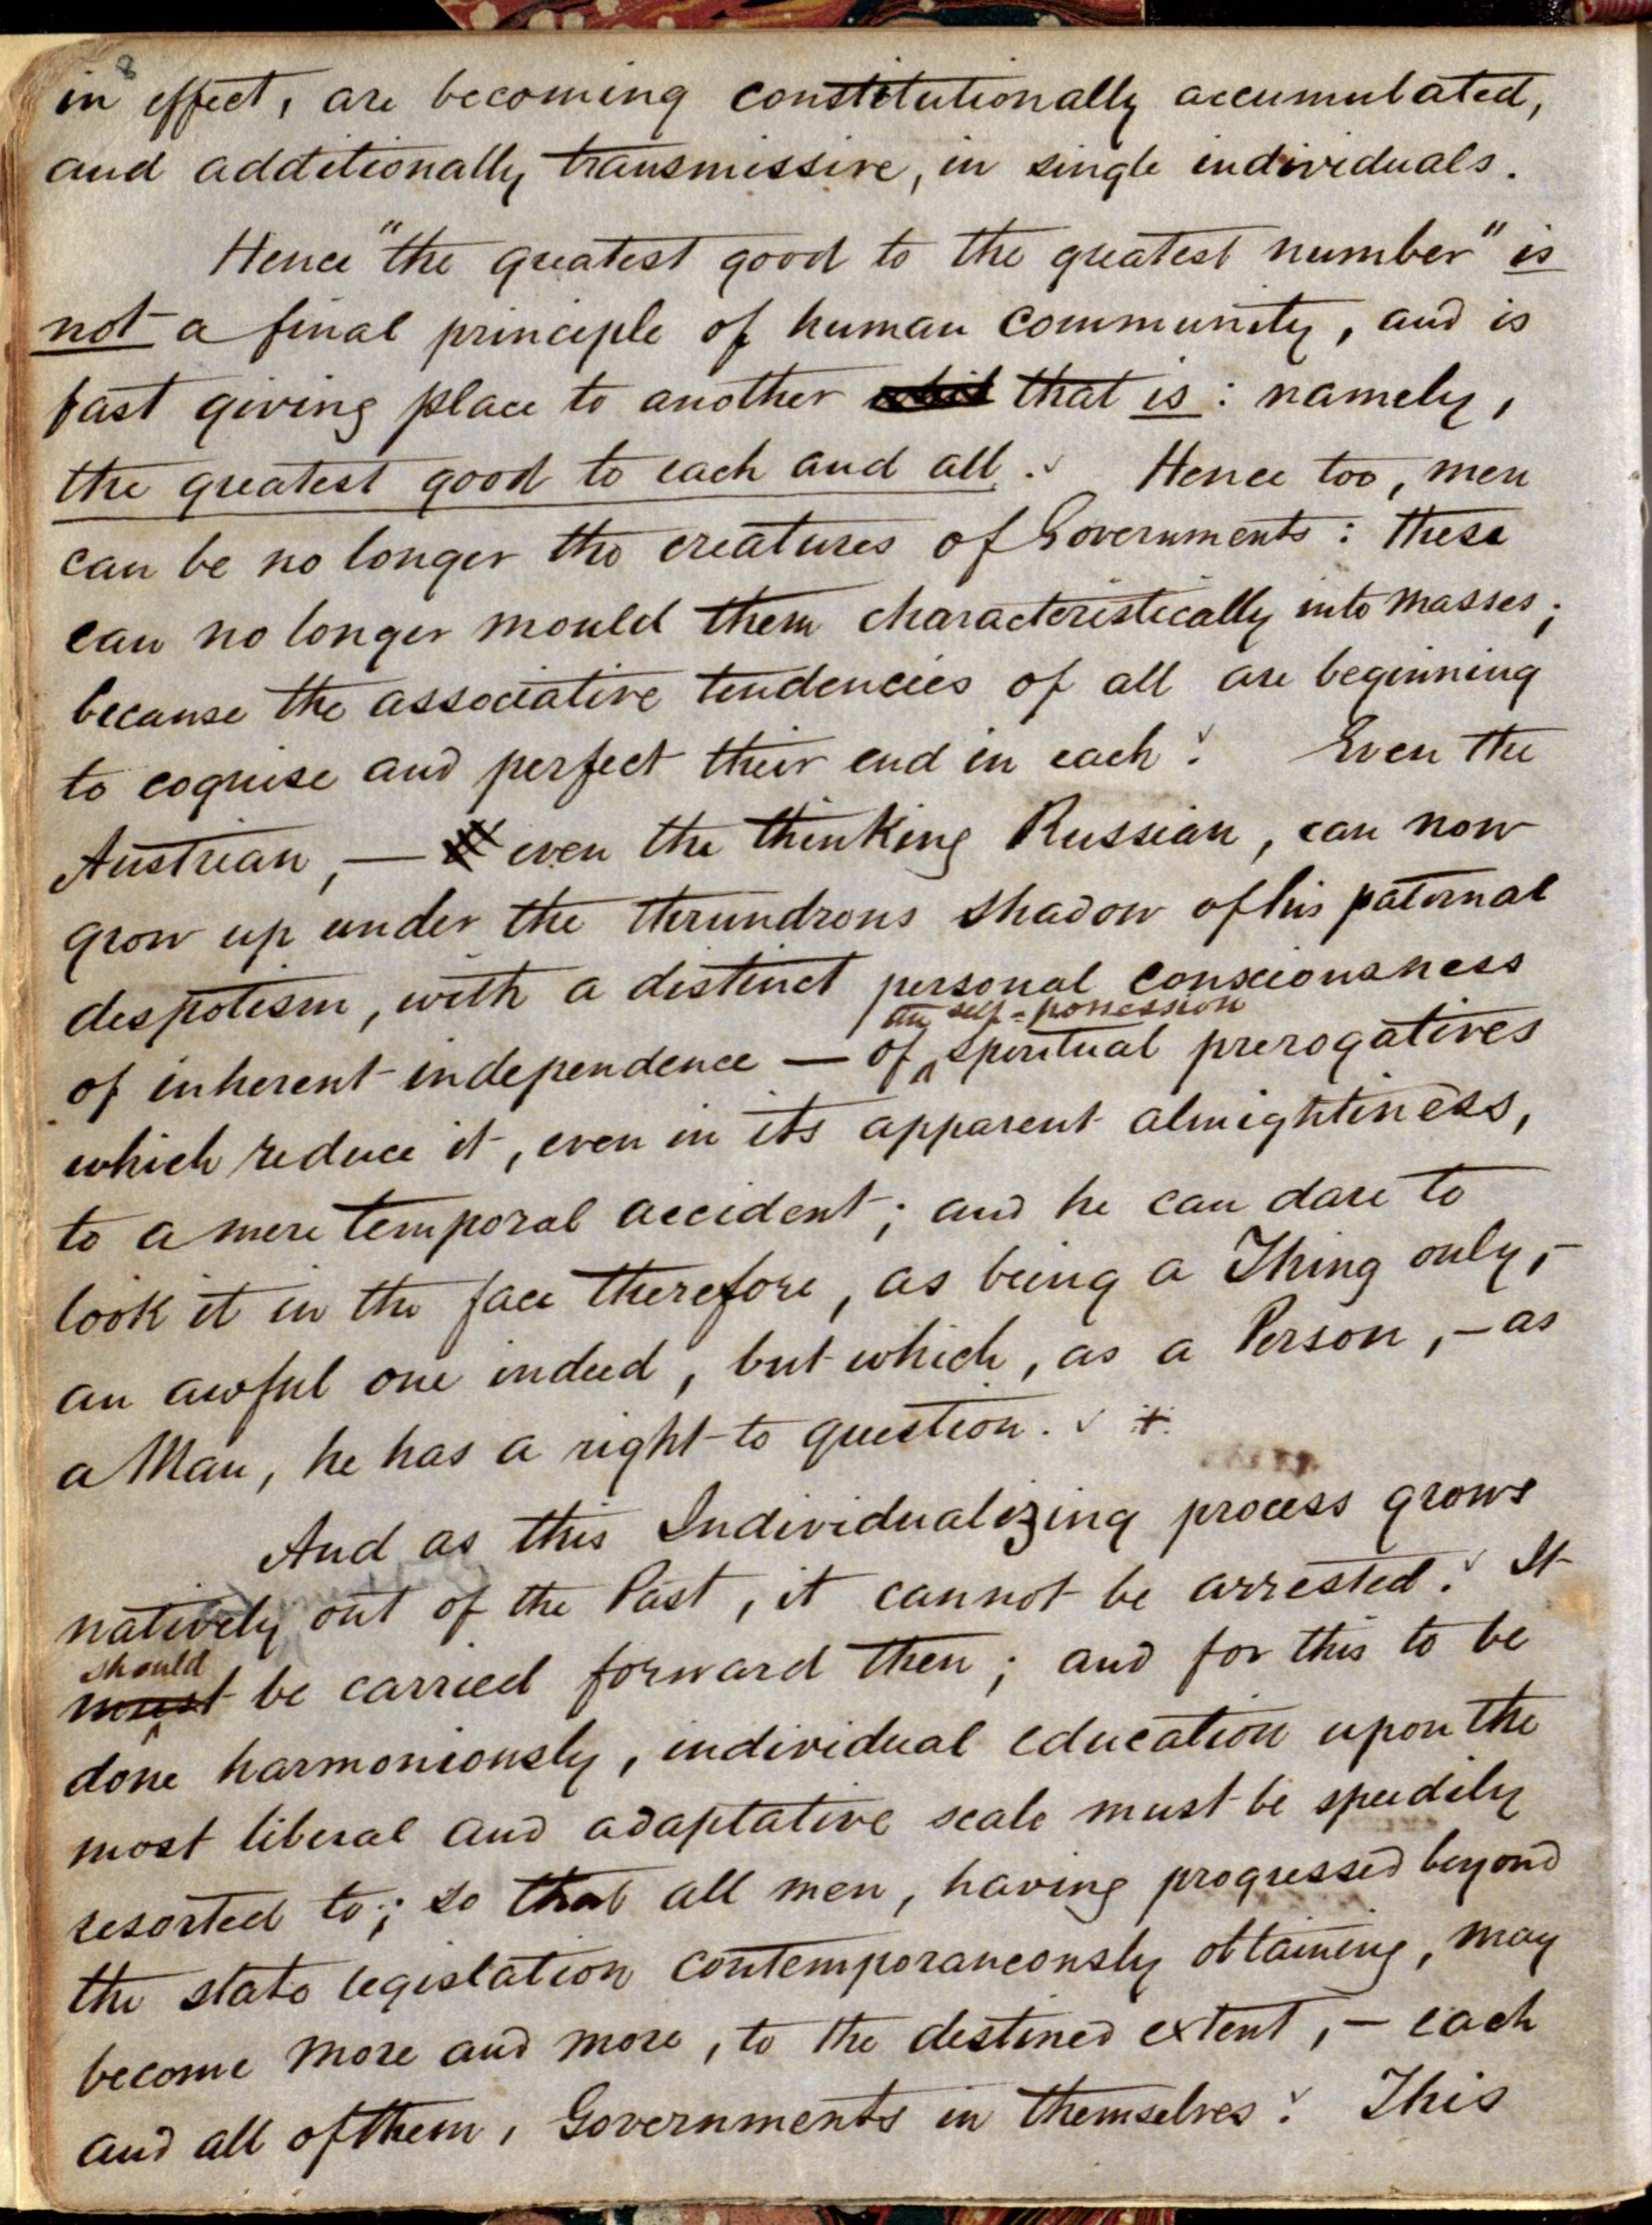 in effect, are becoming constitutionally accumulated,
and additionally transmissive, in single individuals.
Hence "the greatest good to the greatest number" is
not a final principle of human community, and is
fast giving place to another that is: namely,
the greatest good to each and all. Hence too, men
can be no longer the creatures of Governments: these
can no longer mould them characteristically into masses;
because the associative tendencies of all are beginning
to cognise and perfect their end in each. Even the
Austrian, — even the thinking Russian, can now
grow up under the thrundrous shadow of his paternal
despotism, with a distinct personal consciousness
an self-possession
of inherent independence — of spiritual prerogatives
which reduce it, even in its apparent almightiness,
to a mere temporal accident; and he can dare to
look it in the face therefore, as being a Thing only, –
an awful one indeed, but which, as a Person, – as
a Man, he has a right to question. +
And as this Individualizing process grows
natively out of the Past, it cannot be arrested. It
should
must be carried forward then; and for this to be
done harmoniously, individual education upon the
most liberal and adaptative scale must be speedily
resorted to; so that all men, having progressed beyond
the state legislation contemporaneously obtaining, may
become more and more, to the destined extent, – each
and all of them, Governments in themselves. This